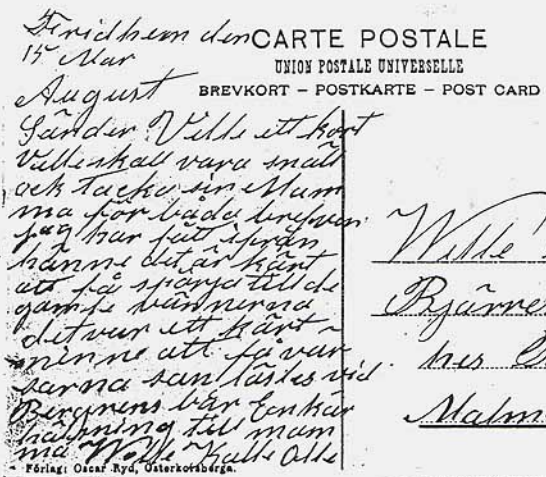 Fridhem den
15 Mar
CARTE POSTALE
UNION POSTALE UNIVERSELLE
BREVKORT – POSTKARTE – POST CARD
August
Sänder Ville ett kort
Ville skall vara snäll
ock tacka sin Mam
ma för båda brefven
jag har fått ifrån
hänne det är kärt
att få spörja till de
gamle vännerna
det var ett kärt
minne att få vär
sarna san lästes vid
Bergrens bår Enkär
hälsning till mam
ma Wille Kalle Olle
Förlag: Oscar Ryd, Österkorsberga.
Wille
Bjärre
hos
Malm